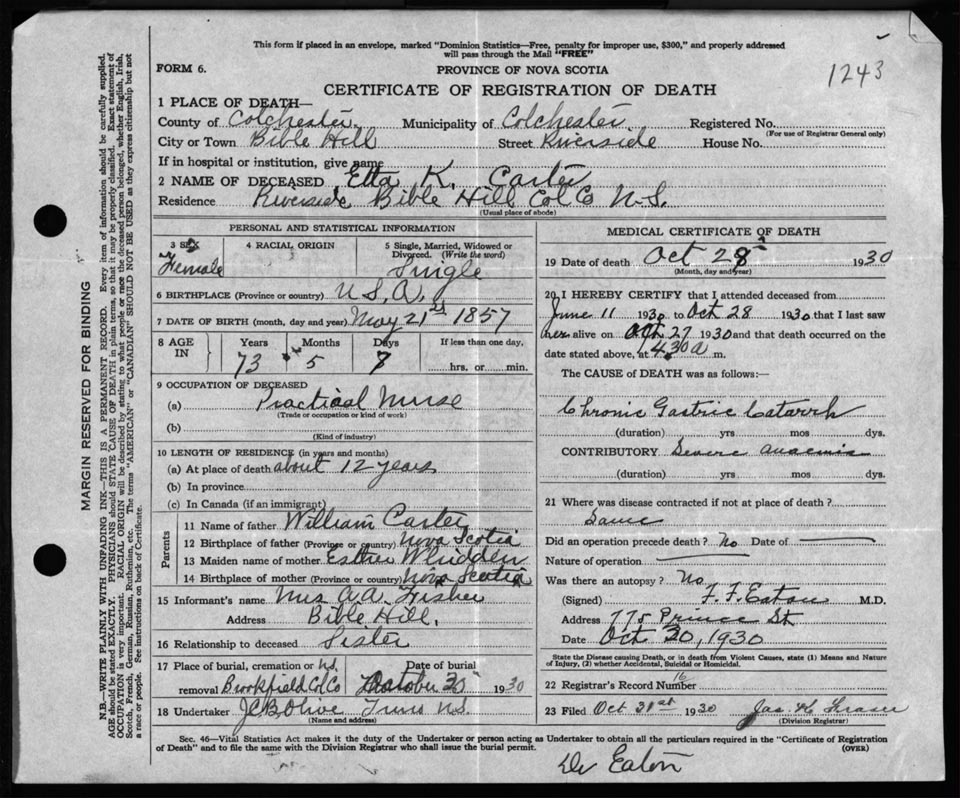 This form if placed in an envelope, marked "Dominion Statistics—Free, penalty for improper use, $300," and properly addressed
will pass through the Mail "FREE"
FORM 6.
PROVINCE OF NOVA SCOTIA
1243
CERTIFICATE OF REGISTRATION OF DEATH
1 PLACE OF DEATH—
County of Colchester. Municipality of Colchester. Registered No.
(For use of Registrar General only)
City or Town Bible Hill Street Riverside House No.
If in hospital or institution, give name
2 NAME OF DECEASED Etta K. Carter
Residence Riverside Bible Hill Col Co N.S.
(Usual place of abode)
PERSONAL AND STATISTICAL INFORMATION
3 SEX Female
4 RACIAL ORIGIN
5 Single, Married, Widowed or Divorced. (Write the word)
Single
6 BIRTHPLACE (Province or country) U.S.A.
7 DATE OF BIRTH (month, day and year) May 21st 1857
8 AGE IN
Years Months Days If less than one day,
73 5 7 hrs. or min.
9 OCCUPATION OF DECEASED
(a) Practical Nurse
(Trade or occupation or kind of work)
(b)
(Kind of industry)
10 LENGTH OF RESIDENCE (in years and months)
(a) At place of death about 12 years
(b) In province
(c) In Canada (if an immigrant)
Parents
11 Name of father William Carter
12 Birthplace of father (Province or country) Nova Scotia
13 Maiden name of mother Esther Whidden
14 Birthplace of mother (Province or country) Nova Scotia
15 Informant's name Mrs A.A. Fisher
Address Bible Hill.
16 Relationship to deceased Sister
17 Place of burial, cremation or removal Brookfield Col Co N.S.
Date of burial October 30 1930
18 Undertaker J.C.B. Olive Truro N.S.
(Name and address)
MEDICAL CERTIFICATE OF DEATH
19 Date of death Oct 28 1930
(Month, day and year)
20 I HEREBY CERTIFY that I attended deceased from
June 11 1930 to Oct 28 1930 that I last saw
her alive on Oct 27 1930 and that death occurred on the
date stated above, at 4.30 a m.
The CAUSE OF DEATH was as follows:—
Chronic Gastric Catarrh
(duration) yrs mos dys.
CONTRIBUTORY Severe anaemia
(duration) yrs. mos. dys.
21 Where was disease contracted if not at place of death?
Same
Did an operation precede death? No Date of
Nature of operation
Was there an autopsy? No
(Signed) F. F. Eaton M.D.
Address 775 Prince St.
Date Oct 30, 1930
State the Disease causing Death, or in death from Violent Causes, state (1) Means and Nature
of Injury, (2) whether Accidental, Suicidal or Homicidal.
22 Registrar's Record Number 16
23 Filed Oct 31st 1930 Jas. K. Fraser
(Division Registrar)
Sec. 46—Vital Statistics Act makes it the duty of the Undertaker or person acting as Undertaker to obtain all the particulars required in the "Certificate of Registration
of Death" and to file the same with the Division Registrar who shall issue the burial permit.
(OVER)
Dr Eaton
MARGIN RESERVED FOR BINDING
N.B.—WRITE PLAINLY WITH UNFADING INK—THIS IS A PERMANENT RECORD. Every item of information should be carefully supplied.
AGE should be stated EXACTLY. PHYSICIANS should STATE CAUSE OF DEATH in plain terms, so that it may be properly classified. Exact statement of
OCCUPATION is very important. RACIAL ORIGIN will be described by stating to what people or race the deceased person belonged, whether English, Irish,
Scotch, French, German, Russian, Ruthenian, etc. The terms "AMERICAN" or "CANADIAN" SHOULD NOT BE USED as they express citizenship but not
a race or people. See instructions on back of Certificate.